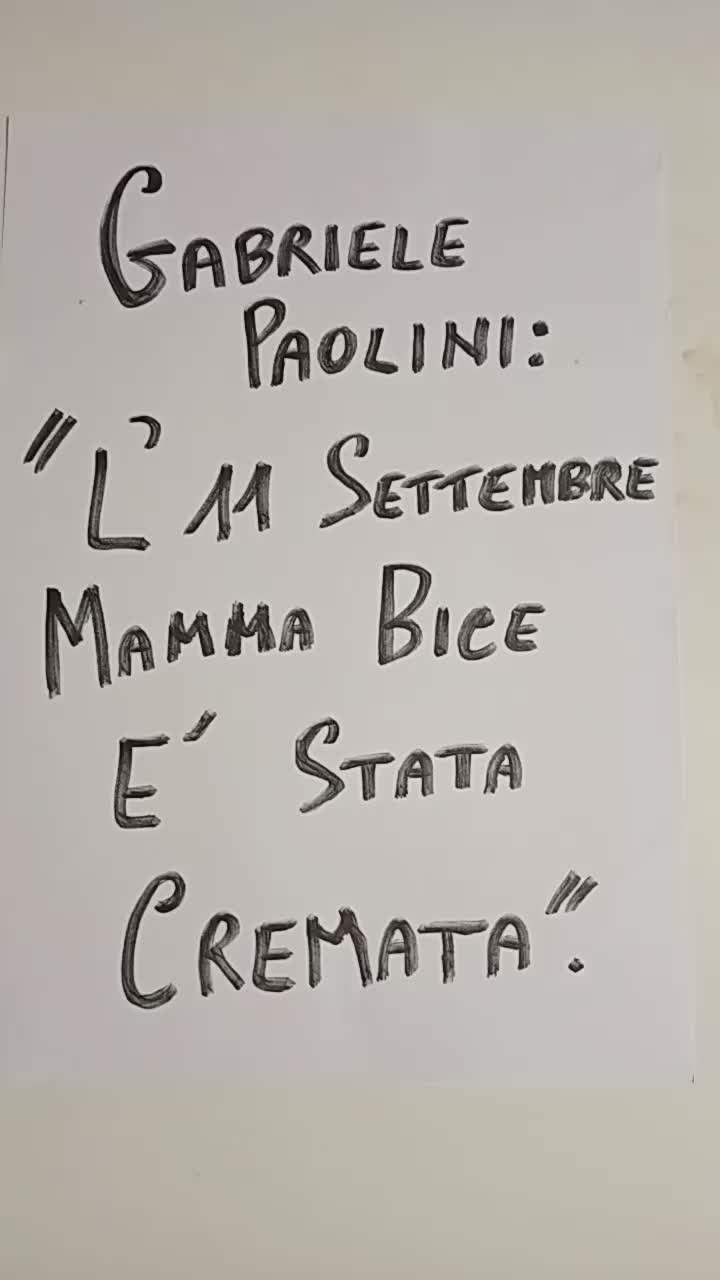 GABRIELE
PAOLINI:
"L'11 SETTEMBRE
MAMMA BICE
E' STATA
CREMATA".